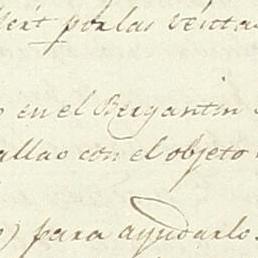 por las venta
o en el Bergantin
allao con el objeto
o) para ayudarlo.